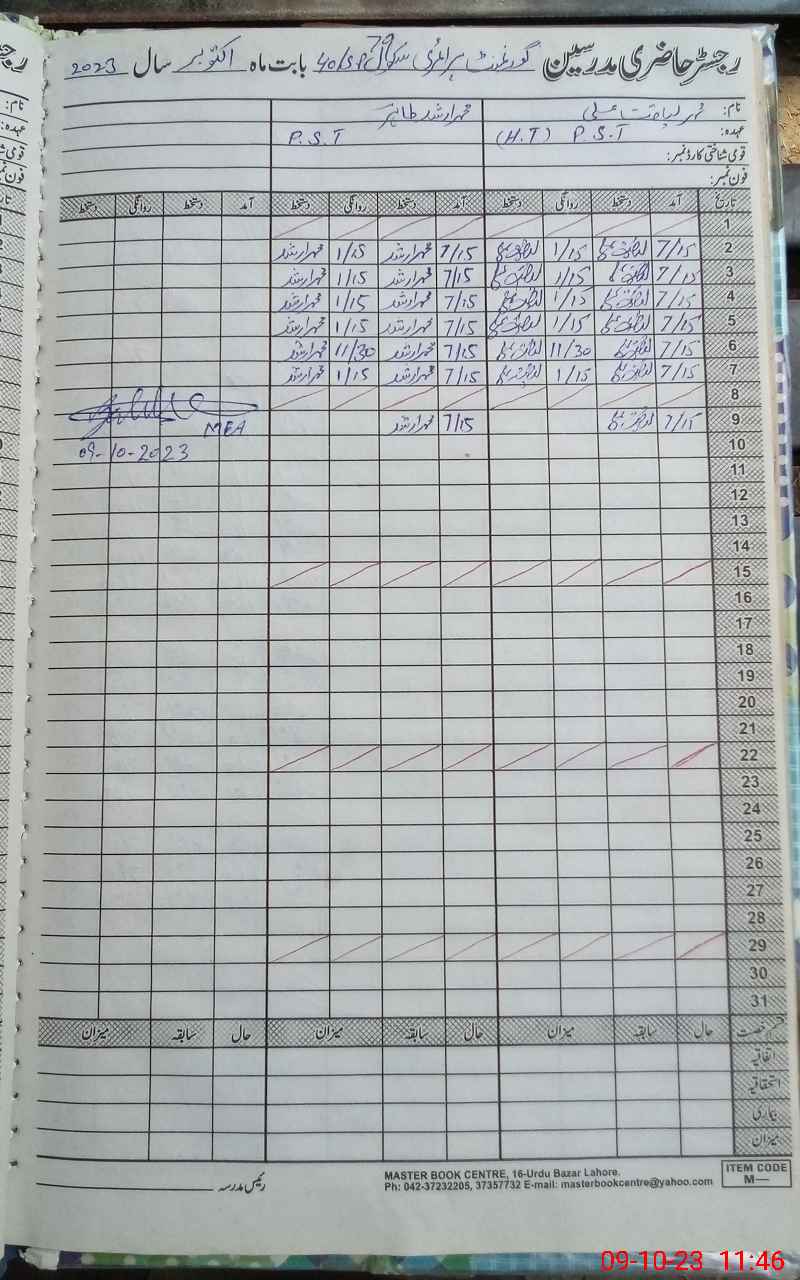 رجسٹر حاضری مدرسین گورنمنٹ پرائمری سکول 79 40/SP بابت ماہ اکتوبر سال 2023
نام: محمد لیاقت علی محمد ارشد طاہر
عہدہ: P.S.T (H.T) P.S.T
قومی شناختی کارڈ نمبر:
فون نمبر:
تاریخ آمد دستخط روانگی دستخط آمد دستخط روانگی دستخط آمد دستخط روانگی دستخط
1
2 7/15 لیاقت علی 1/15 لیاقت علی 7/15 محمد ارشد 1/15 محمد ارشد
3 7/15 لیاقت علی 1/15 لیاقت علی 7/15 محمد ارشد 1/15 محمد ارشد
4 7/15 لیاقت علی 1/15 لیاقت علی 7/15 محمد ارشد 1/15 محمد ارشد
5 7/15 لیاقت علی 1/15 لیاقت علی 7/15 محمد ارشد 1/15 محمد ارشد
6 7/15 لیاقت علی 11/30 لیاقت علی 7/15 محمد ارشد 11/30 محمد ارشد
7 7/15 لیاقت علی 1/15 لیاقت علی 7/15 محمد ارشد 1/15 محمد ارشد
8
9 7/15 لیاقت علی 7/15 محمد ارشد MEA
10 09-10-2023
11
12
13
14
15
16
17
18
19
20
21
22
23
24
25
26
27
28
29
30
31
قسم رخصت حال سابقہ میزان حال سابقہ میزان حال سابقہ میزان
اتفاقیہ
استحقاقیہ
بیماری
میزان
رئیس مدرسہ
MASTER BOOK CENTRE, 16-Urdu Bazar Lahore.
Ph: 042-37232205, 37357732 E-mail: masterbookcentre@yahoo.com
ITEM CODE
M—
09-10-23 11:46